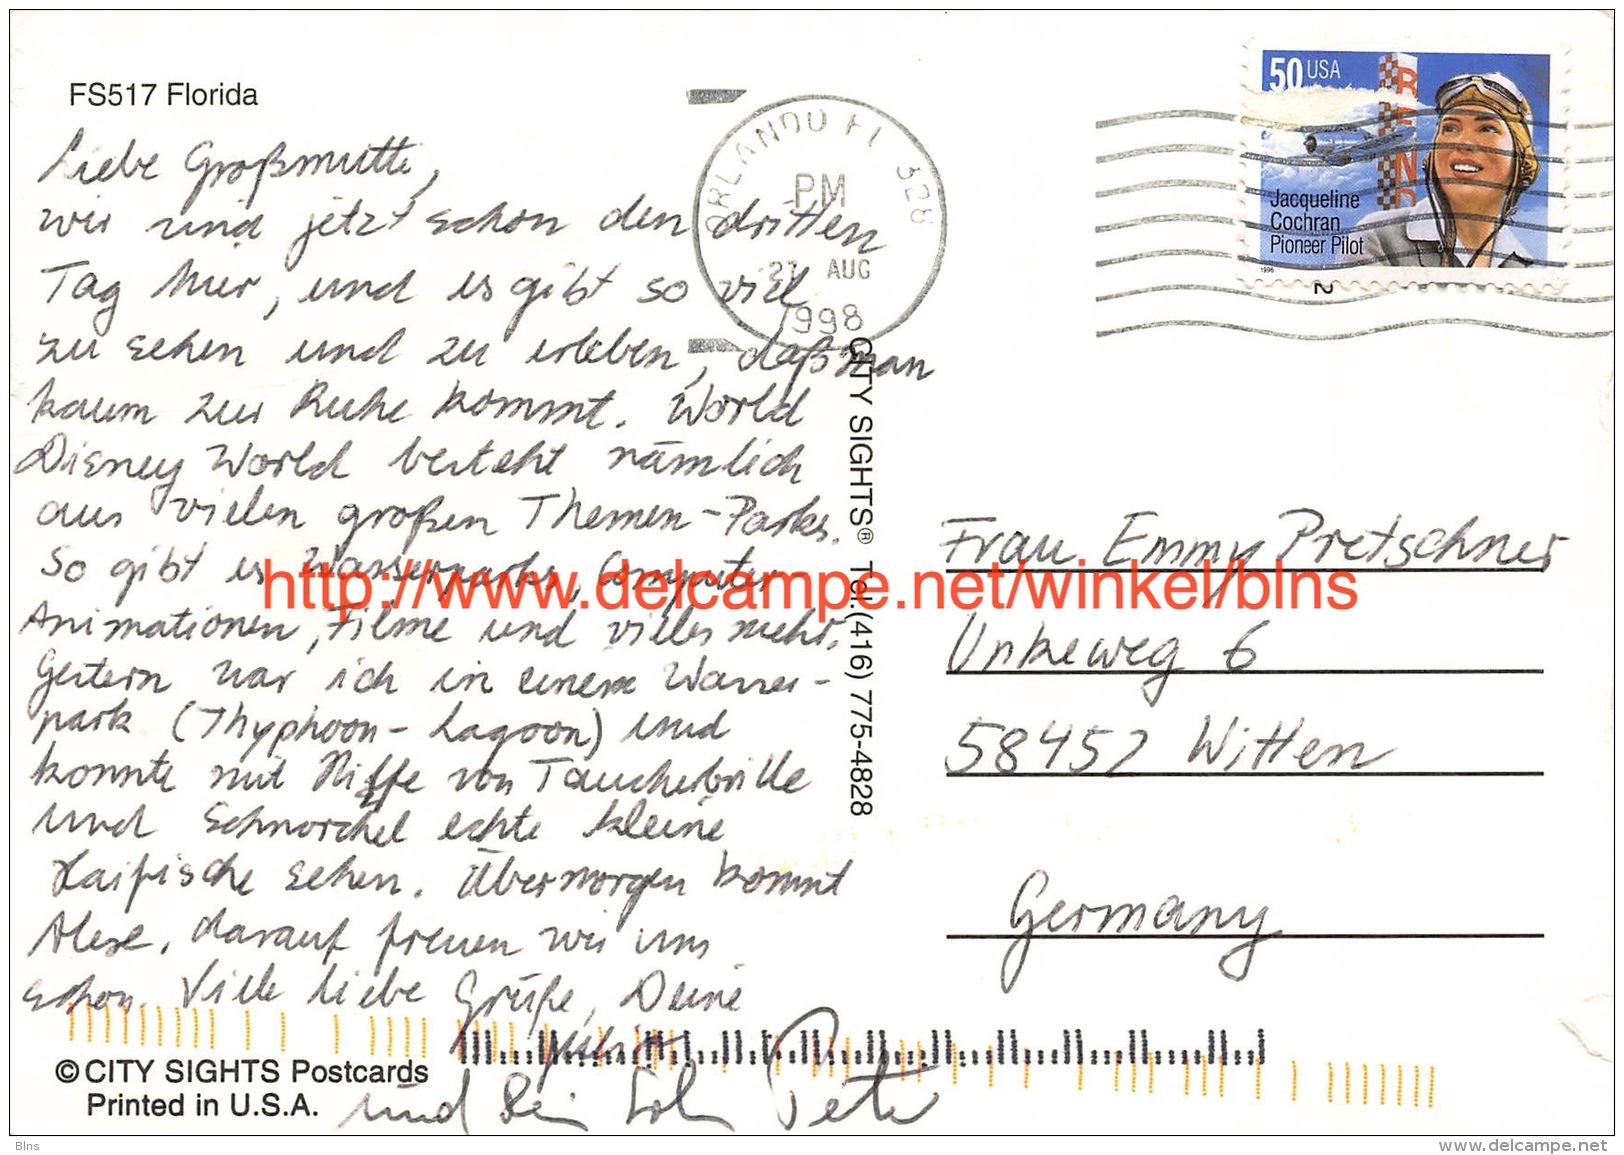 FS517 Florida
Liebe Großmutti,
wir sind jetzt schon den dritten
Tag hier, und es gibt so viel
zu sehen und zu erleben, daß man
kaum zur Ruhe kommt. World
Disney World besteht nämlich
aus vielen großen Themen-Parks.
So gibt es Wasserparks, Computer
Animationen, Filme und vieles mehr.
Gestern war ich in einem Wasser-
park (Thyphoon-Lagoon) und
konnte mit Hilfe von Taucherbrille
und Schnorchel echte kleine
Haifische sehen. Übermorgen kommt
Alexe, darauf freuen wir uns
schon. Viele liebe Grüße, Deine
und Dein Sohn Peter
© CITY SIGHTS Postcards
Printed in U.S.A.
CITY SIGHTS® Tel.(416) 775-4828
ORLANDO FL 328
PM
27 AUG
1998
50 USA
RENO
Jacqueline
Cochran
Pioneer Pilot
1996
2
Frau Emmy Pretschner
Unkeweg 6
58457 Witten
Germany
http://www.delcampe.net/winkel/blns
Blns
www.delcampe.net